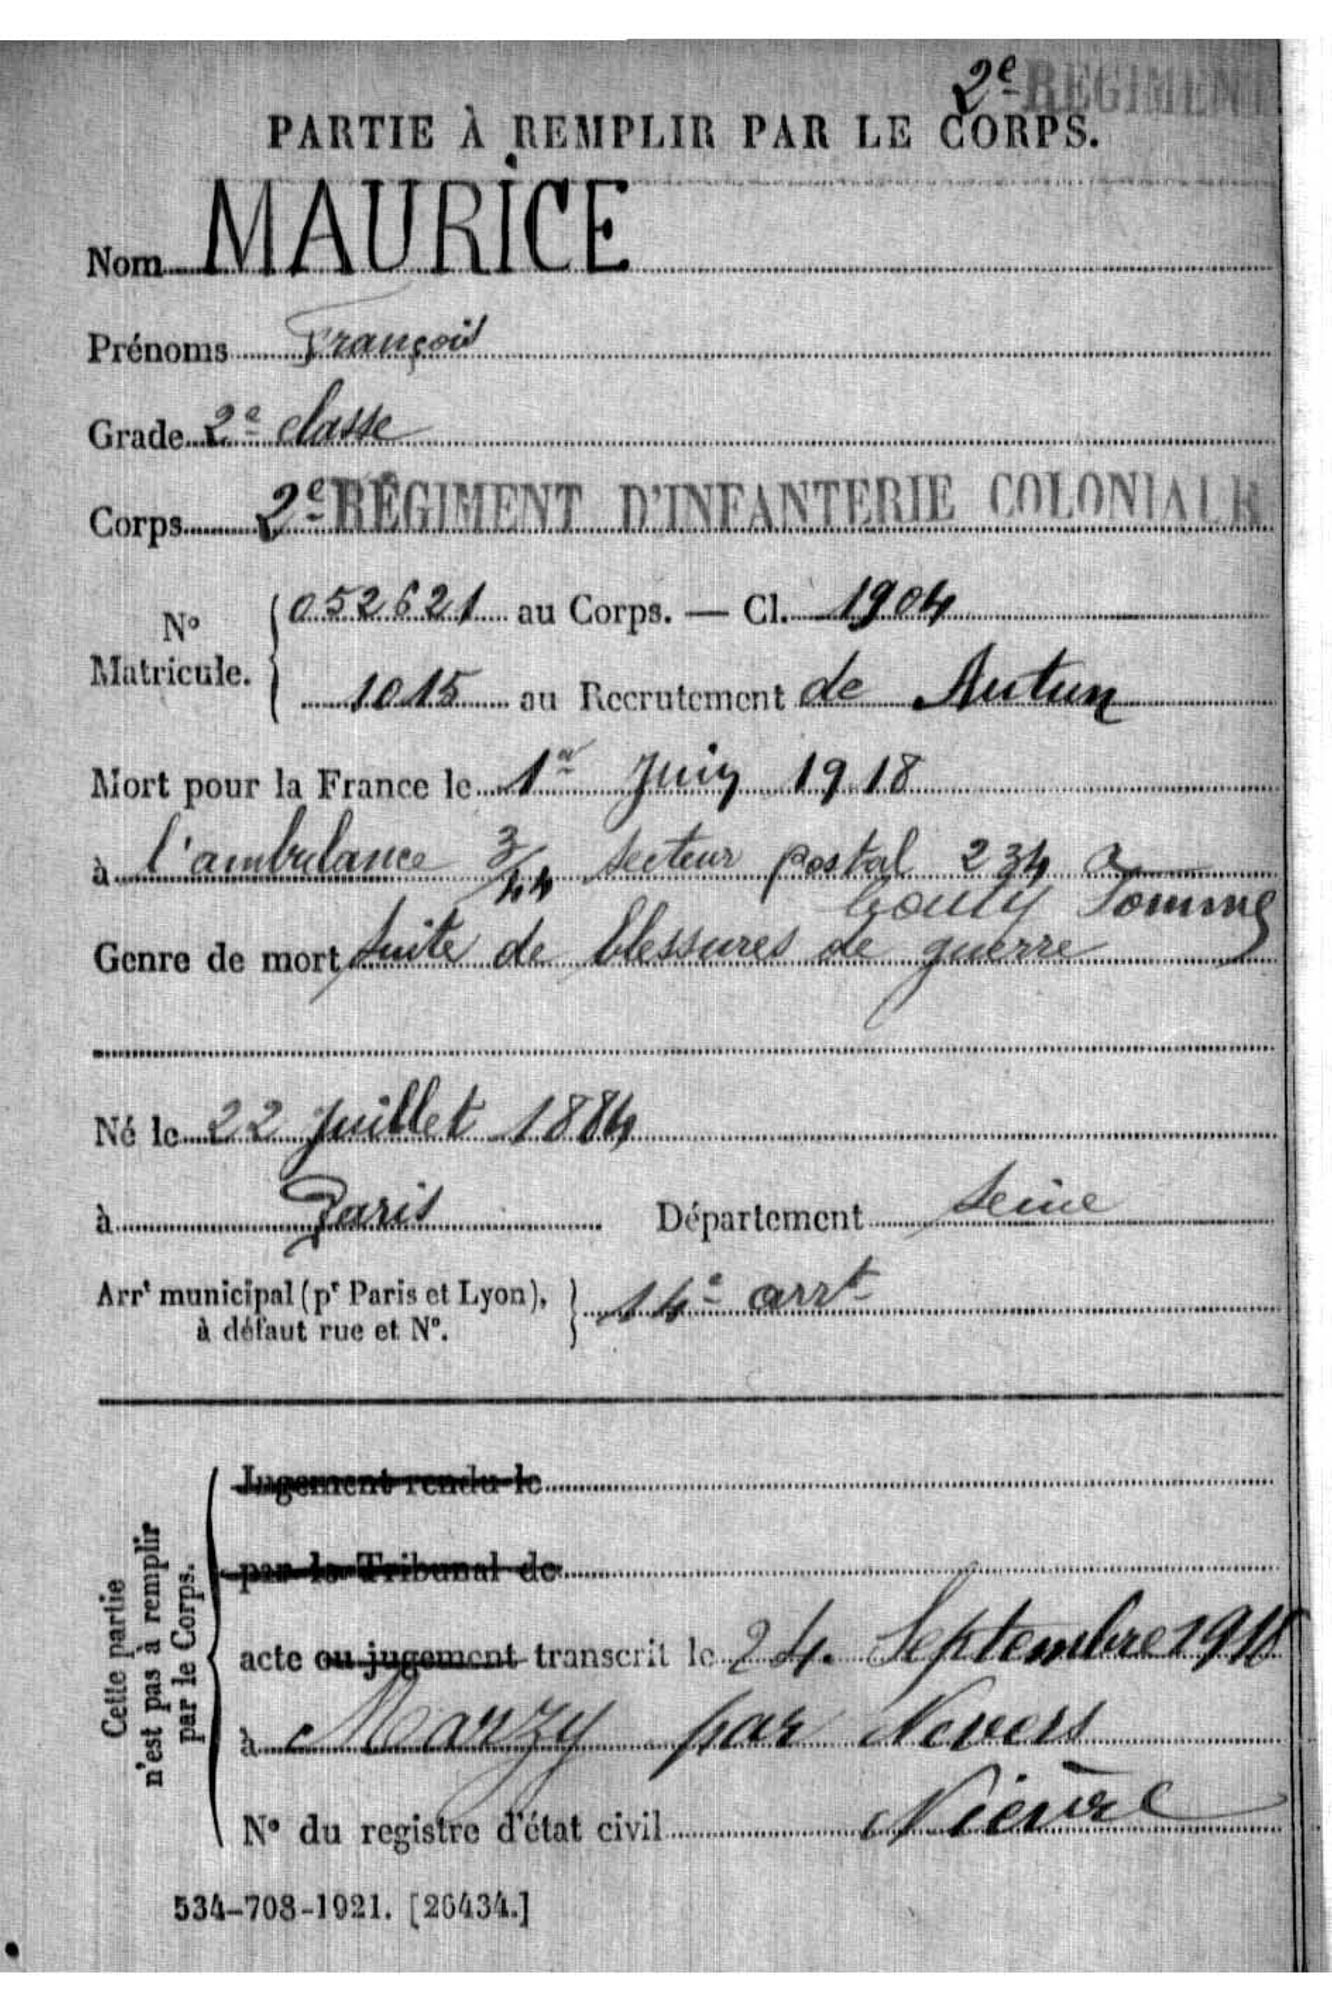 2e RÉGIMENT
PARTIE À REMPLIR PAR LE CORPS.
Nom MAURICE
Prénoms François
Grade 2e classe
Corps 2e RÉGIMENT D'INFANTERIE COLONIALE
N° Matricule. { 052621 au Corps. — Cl. 1904
1015 au Recrutement de Autun
Mort pour la France le 1er Juin 1918
à l'ambulance 3/44 secteur postal 234 à
Somme
Genre de mort suite de blessures de guerre
Né le 22 Juillet 1884
à Paris Département Seine
Arrt municipal (pr Paris et Lyon), } 14e arrt
à défaut rue et N°.
Cette partie
n'est pas à remplir
par le Corps.
Jugement rendu le
par le Tribunal de
acte ou jugement transcrit le 24 Septembre 1918
à Marzy par Nevers
N° du registre d'état civil Nièvre
534-708-1921. [26434.]